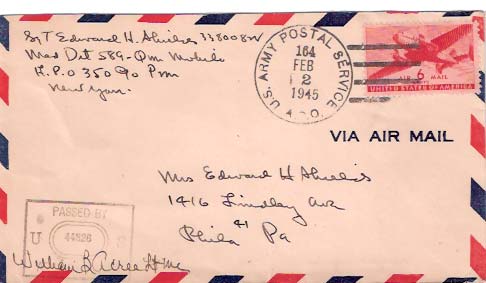 Sgt Edward H Shieles 33800821
Med Det 589 - Qm Mobile
A.P.O 350 % P.m
New York.
U.S. ARMY POSTAL SERVICE
164
FEB
2
1945
A.P.O.
AIR 6 MAIL
UNITED STATES OF AMERICA
VIA AIR MAIL
Mrs Edward H Shields
1416 Lindley Ave
41
Phila Pa
PASSED BY
U S
44326
William